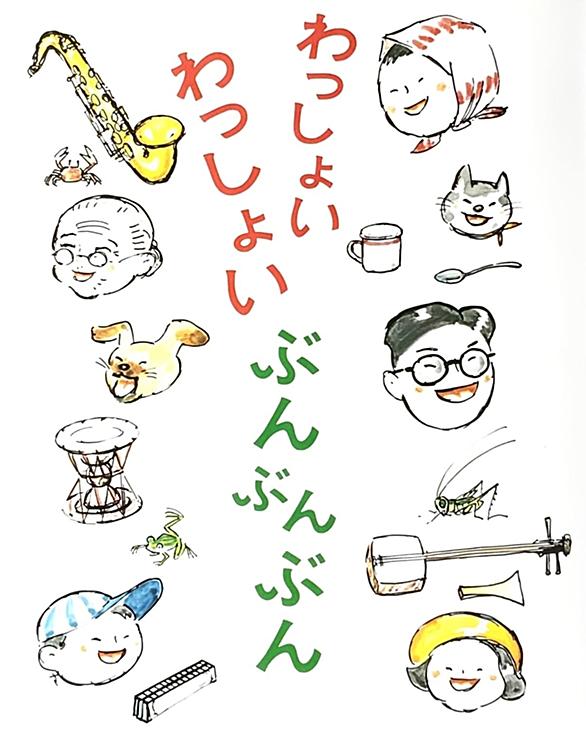 わっしょい
わっしょい
ぶんぶんぶん